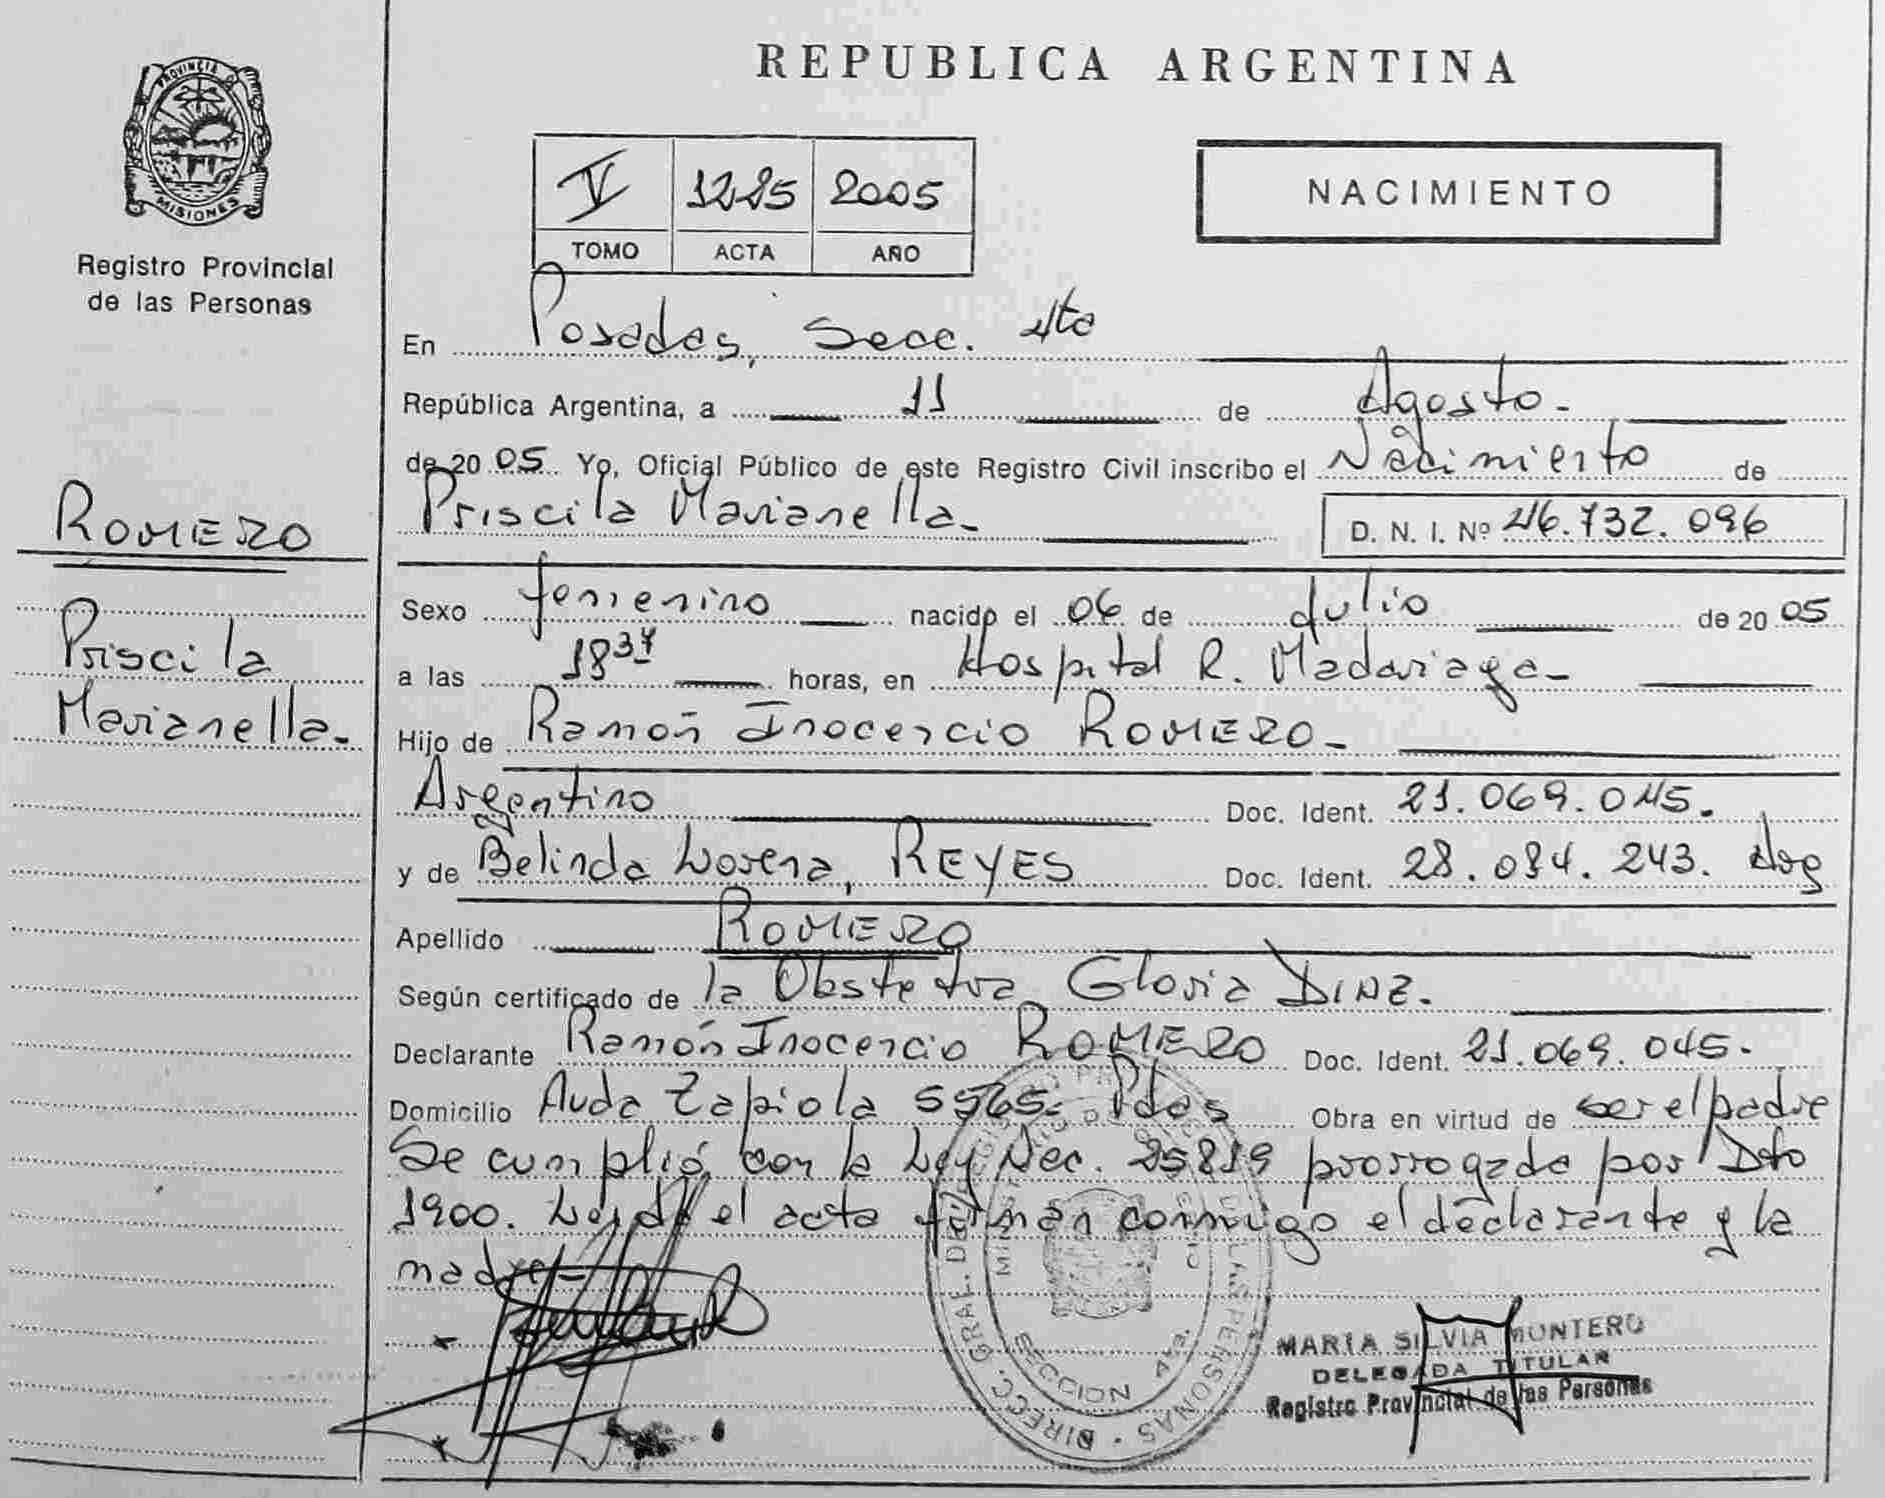 PROVINCIA DE
MISIONES
Registro Provincial
de las Personas
ROMERO
Priscila
Marianella.
REPUBLICA ARGENTINA
V 1225 2005
TOMO ACTA AÑO
NACIMIENTO
En Posadas, Secc. 4ta
República Argentina, a 11 de Agosto.
de 20 05 Yo, Oficial Público de este Registro Civil inscribo el Nacimiento de
Priscila Marianella. D. N. I. Nº 46.732.096
Sexo femenino nacido el 06 de Julio de 20 05
a las 18 37 horas, en Hospital R. Madariaga.
Hijo de Ramón Inocencio ROMERO.
Argentino Doc. Ident. 21.069.045.
y de Belinda Lorena, REYES Doc. Ident. 28.084.243. Arg
Apellido ROMERO
Según certificado de la Obstetra Gloria DINZ.
Declarante Ramón Inocencio ROMERO Doc. Ident. 21.069.045.
Domicilio Avda Zapiola 5565. Pdas Obra en virtud de ser el padre
Se cumplió con la Ley Nac. 25819 prorrogada por Dto
1900. Leída el acta firman conmigo el declarante y la
madre.
SECCION 4ta.
MARIA SILVIA MONTERO
DELEGADA TITULAR
Registro Provincial de las Personas